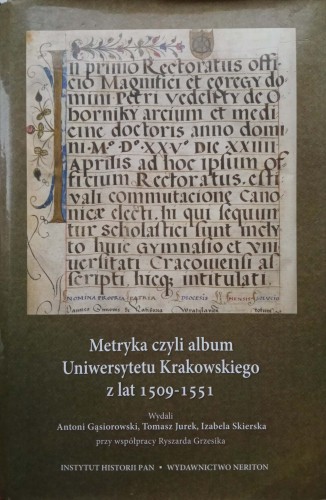 In primo Rectoratus offi
cio Magnifici et egregy do
mini Petri Vedelicy de O
borniky arcium et medi
cine doctoris anno domi
ni·M·D·XXV DIE XXIIII
Aprilis ad hoc ipsum of
ficium Rectoratus esti
vali commutacione Cano
nicæ electi. hi qui sequun
tur scholastici sunt mely
to huic Gymnasio et vni
uersitati Cracouiensi as
scripti, hicq; intitulati.
NOMINA PROPRIA PATRIA
Metryka czyli album
Uniwersytetu Krakowskiego
z lat 1509-1551
Wydali
Antoni Gąsiorowski, Tomasz Jurek, Izabela Skierska
przy współpracy Ryszarda Grzesika
INSTYTUT HISTORII PAN • WYDAWNICTWO NERITON